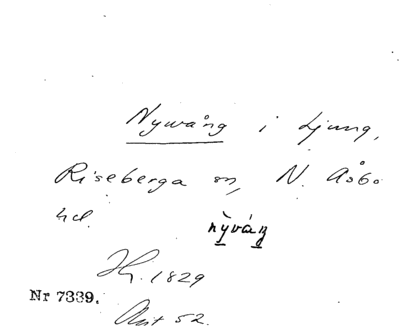 Nywång i Ljung,
Riseberga sn, N. Åsbo
hd.
nỳváŋ
1829
Nr 7339.
52.